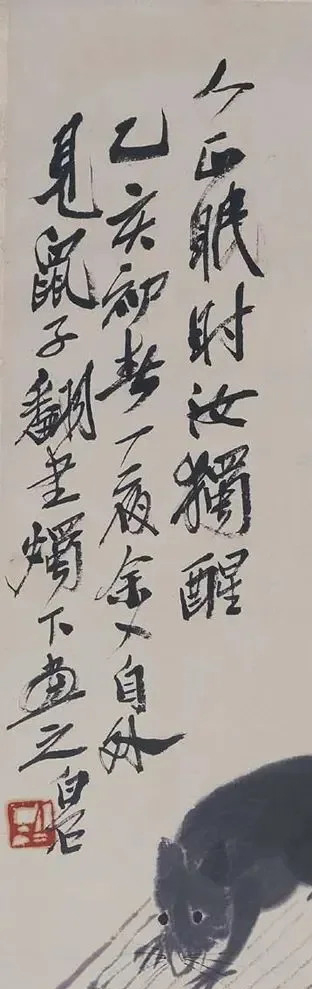 人正眠时汝獨醒
乙亥初春一夜余入自外
見鼠子翻書燭下画之白石